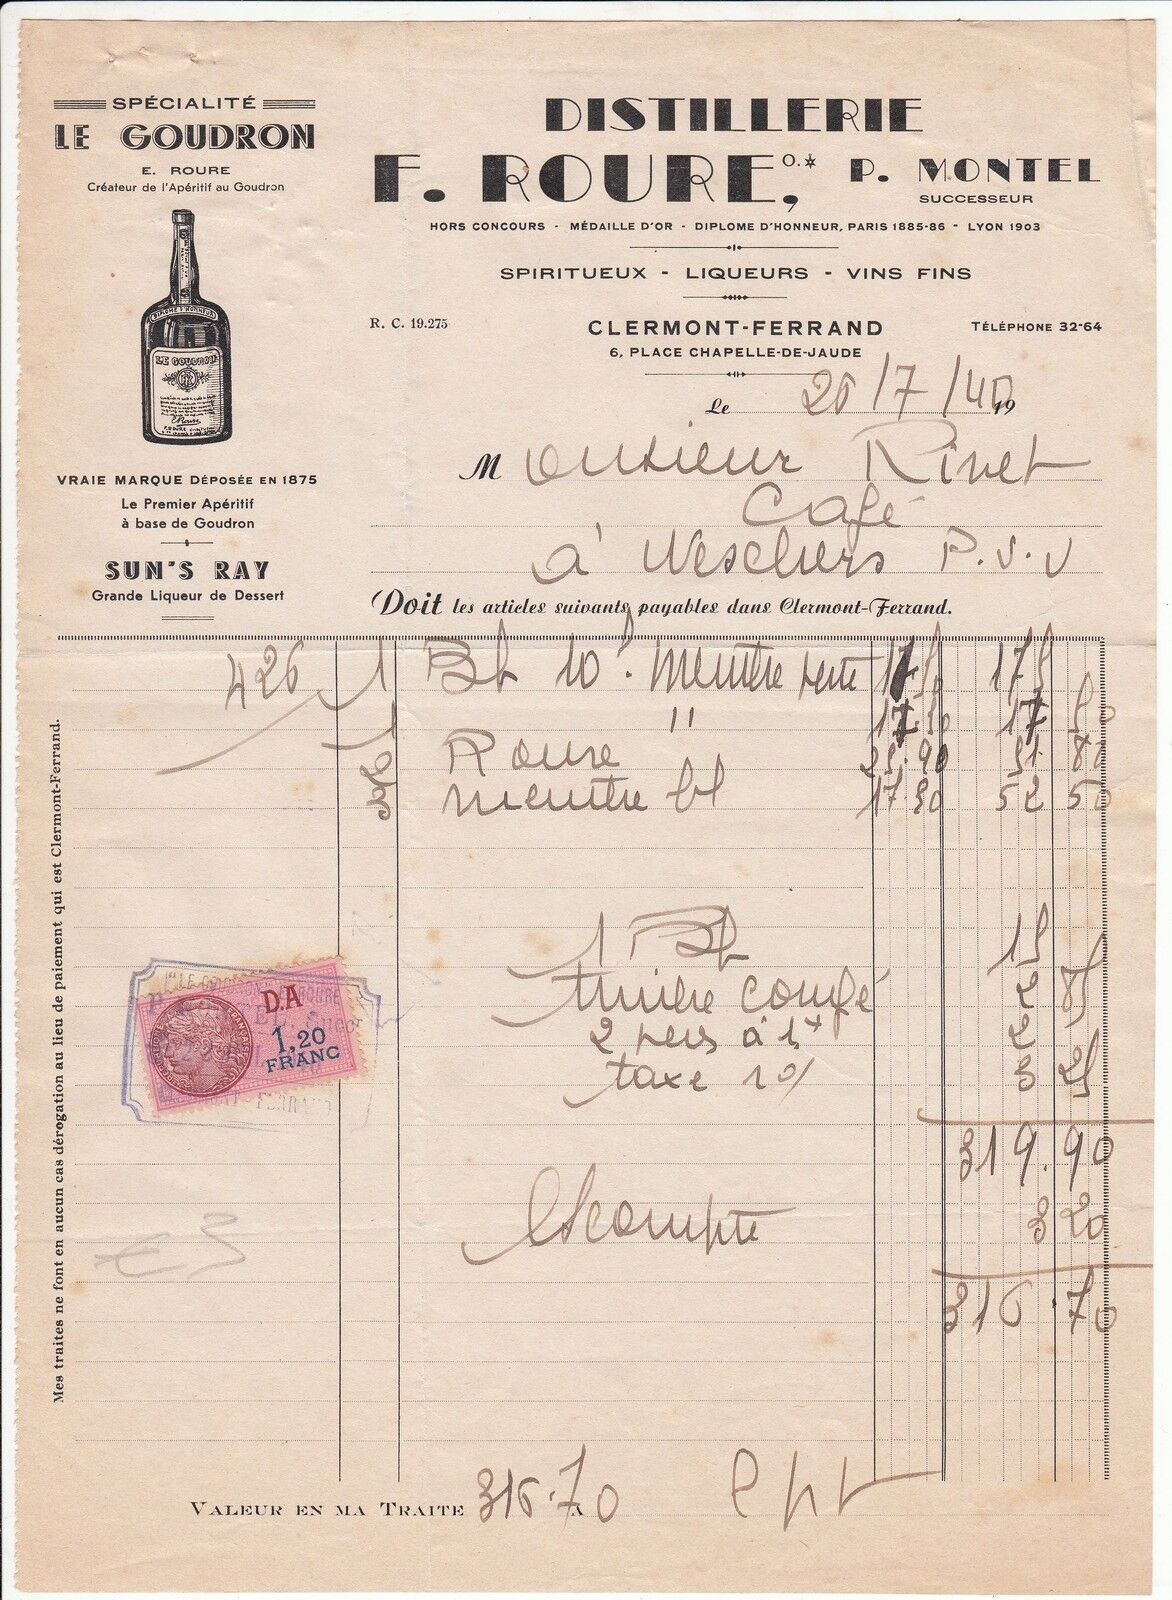 SPÉCIALITÉ
LE GOUDRON
E. ROURE
Créateur de l'Apéritif au Goudron
DIPLOME D'HONNEUR
LE GOUDRON
VRAIE MARQUE DÉPOSÉE EN 1875
Le Premier Apéritif
à base de Goudron
SUN'S RAY
Grande Liqueur de Dessert
DISTILLERIE
F. ROURE, O.* P. MONTEL
SUCCESSEUR
HORS CONCOURS - MÉDAILLE D'OR - DIPLOME D'HONNEUR, PARIS 1885-86 - LYON 1903
SPIRITUEUX - LIQUEURS - VINS FINS
R. C. 19.275
CLERMONT-FERRAND
TÉLÉPHONE 32-64
6, PLACE CHAPELLE-DE-JAUDE
Le 26/7/40 19
Monsieur Rivet
Café
à Neschers P.d.D
Doit les articles suivants payables dans Clermont-Ferrand.
426 1 Bt 10l. menthe verte 175 175
1 " 17 50 17 50
2 Roure 25.90 51. 80
3 menthe bl 17 50 52 50
1 Bt 15
timbre congé 2 85
2 à 1 2
taxe 1% 3 25
319.90
Escompte 3 20
316.70
D.A
1,20
FRANC
CLERMONT-FERRAND
Mes traites ne font en aucun cas dérogation au lieu de paiement qui est Clermont-Ferrand.
VALEUR EN MA TRAITE 316.70 A cpt